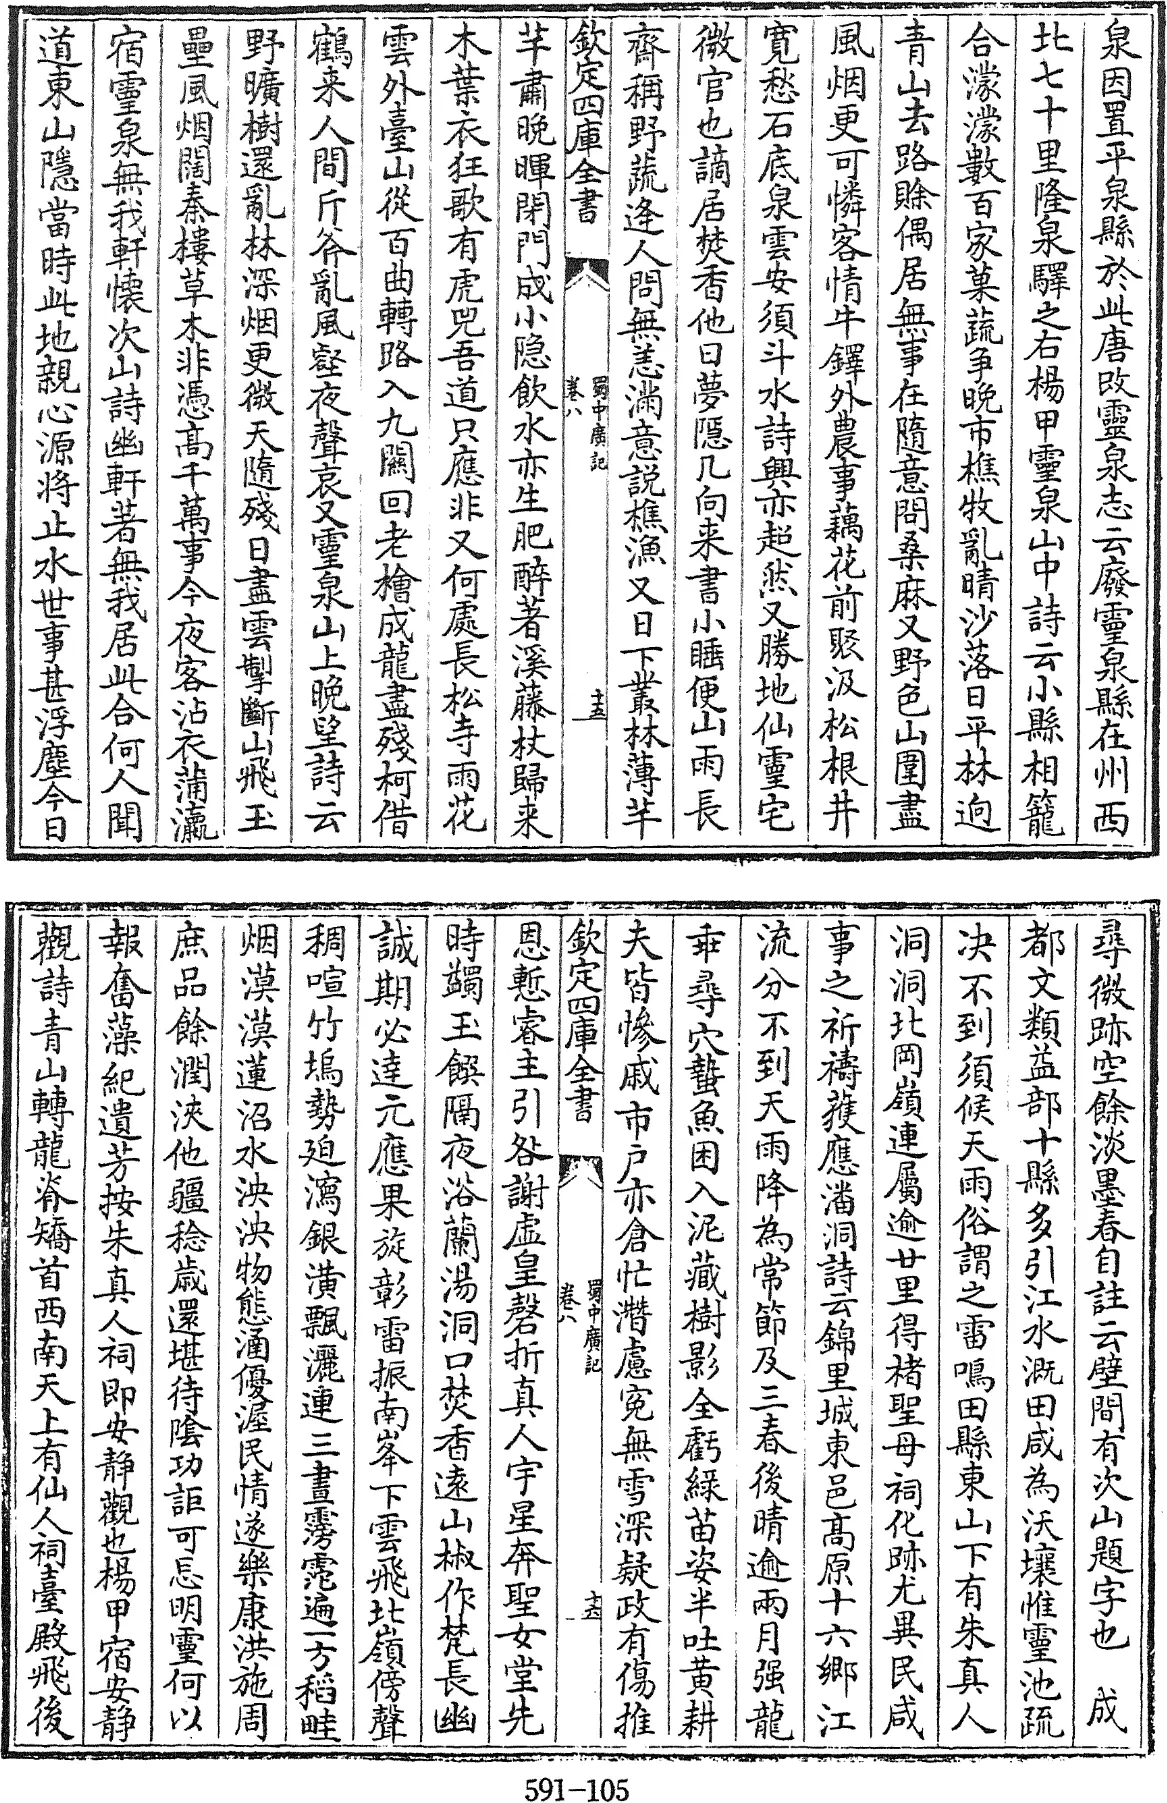 泉因置平泉縣於此唐改靈泉志云廢靈泉縣在州西
北七十里隆泉驛之右楊甲靈泉山中詩云小縣相籠
合濛濛數百家菓蔬爭晚市樵牧亂晴沙落日平林逈
青山去路賖偶居無事在隨意問桑麻又野色山圍盡
風烟更可憐客情牛鐸外農事藕花前聚汲松根井
寛愁石底泉雲安須斗水詩興亦超然又勝地仙靈宅
微官也謫居焚香他日夢隠几向来書小睡便山雨長
齋稱野蔬逢人問無恙滿意説樵漁又日下叢林薄芊
欽定四庫全書
蜀中廣記
卷八
十五
芊肅晩暉閑門成小隠飲水亦生肥醉著溪藤杖歸来
木葉衣狂歌有虎兕吾道只應非又何處長松寺雨花
雲外臺山從百曲轉路入九關回老檜成龍盡殘柯借
鶴来人間斤斧亂風壑夜聲哀又靈泉山上晩望詩云
野曠樹還亂林深烟更微天隨殘日盡雲掣斷山飛玉
壘風烟闊秦樓草木非憑髙千萬事今夜客沾衣蒲瀛
宿靈泉無我軒懐次山詩幽軒著無我居此合何人聞
道東山隱當時此地親心源将止水世事甚浮塵今日
尋微跡空餘淡墨春自註云壁間有次山題字也　成
都文類益部十縣多引江水溉田咸為沃壤惟靈池疏
决不到須候天雨俗謂之雷鳴田縣東山下有朱真人
洞洞北岡嶺連屬逾廿里得禇聖母祠化跡尤異民咸
事之祈禱獲應潘洞詩云錦里城東邑髙原十六鄉江
流分不到天雨降為常節及三春後晴逾兩月强龍
乖尋穴蟄魚困入泥藏樹影全虧緑苗姿半吐黄耕
夫皆慘戚市户亦倉忙濳慮寃無雪深疑政有傷推
欽定四庫全書
蜀中廣記
卷八
十六
恩慙睿主引咎謝虛皇磬折真人宇星奔聖女堂先
時蠲玉饌隔夜浴蘭湯洞口焚香遠山椒作梵長幽
誠期必達元應果旋彰雷振南峯下雲飛北嶺傍聲
稠喧竹塢勢廹瀉銀潢飄灑連三晝霶霑遍一方稻畦
烟漠漠蓮沼水泱泱物態涵優渥民情遂樂康洪施周
庶品餘潤浹他疆稔歲還堪待隂功詎可忘明靈何以
報奮藻紀遺芳按朱真人祠即安静觀也楊甲宿安静
觀詩青山轉龍脊矯首西南天上有仙人祠臺殿飛後
591-105